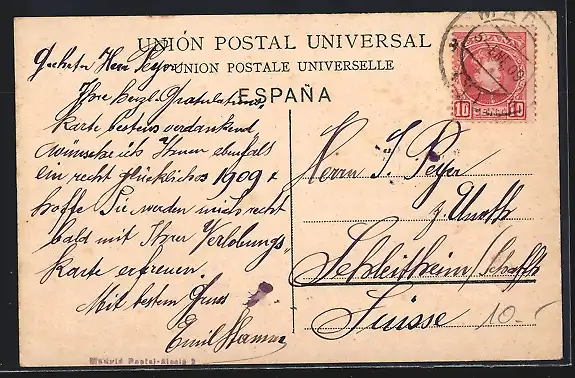 UNIÓN POSTAL UNIVERSAL
UNION POSTALE UNIVERSELLE
ESPAÑA
Geehrter Herr Peyer
Ihre herzl. Gratulations,
karte bestens verdankend
wünsche ich Ihnen ebenfalls
ein recht glückliches 1909 &
hoffe Sie werden mich recht
bald mit Ihrer Verlobungs„
karte erfreuen.
Mit bestem Gruss
Emil Stamm
Herrn J. Peyer
Schleitheim/Schaffh
Suisse
10.-
MAD
10 10
Madrid Postal-Alcalá 2